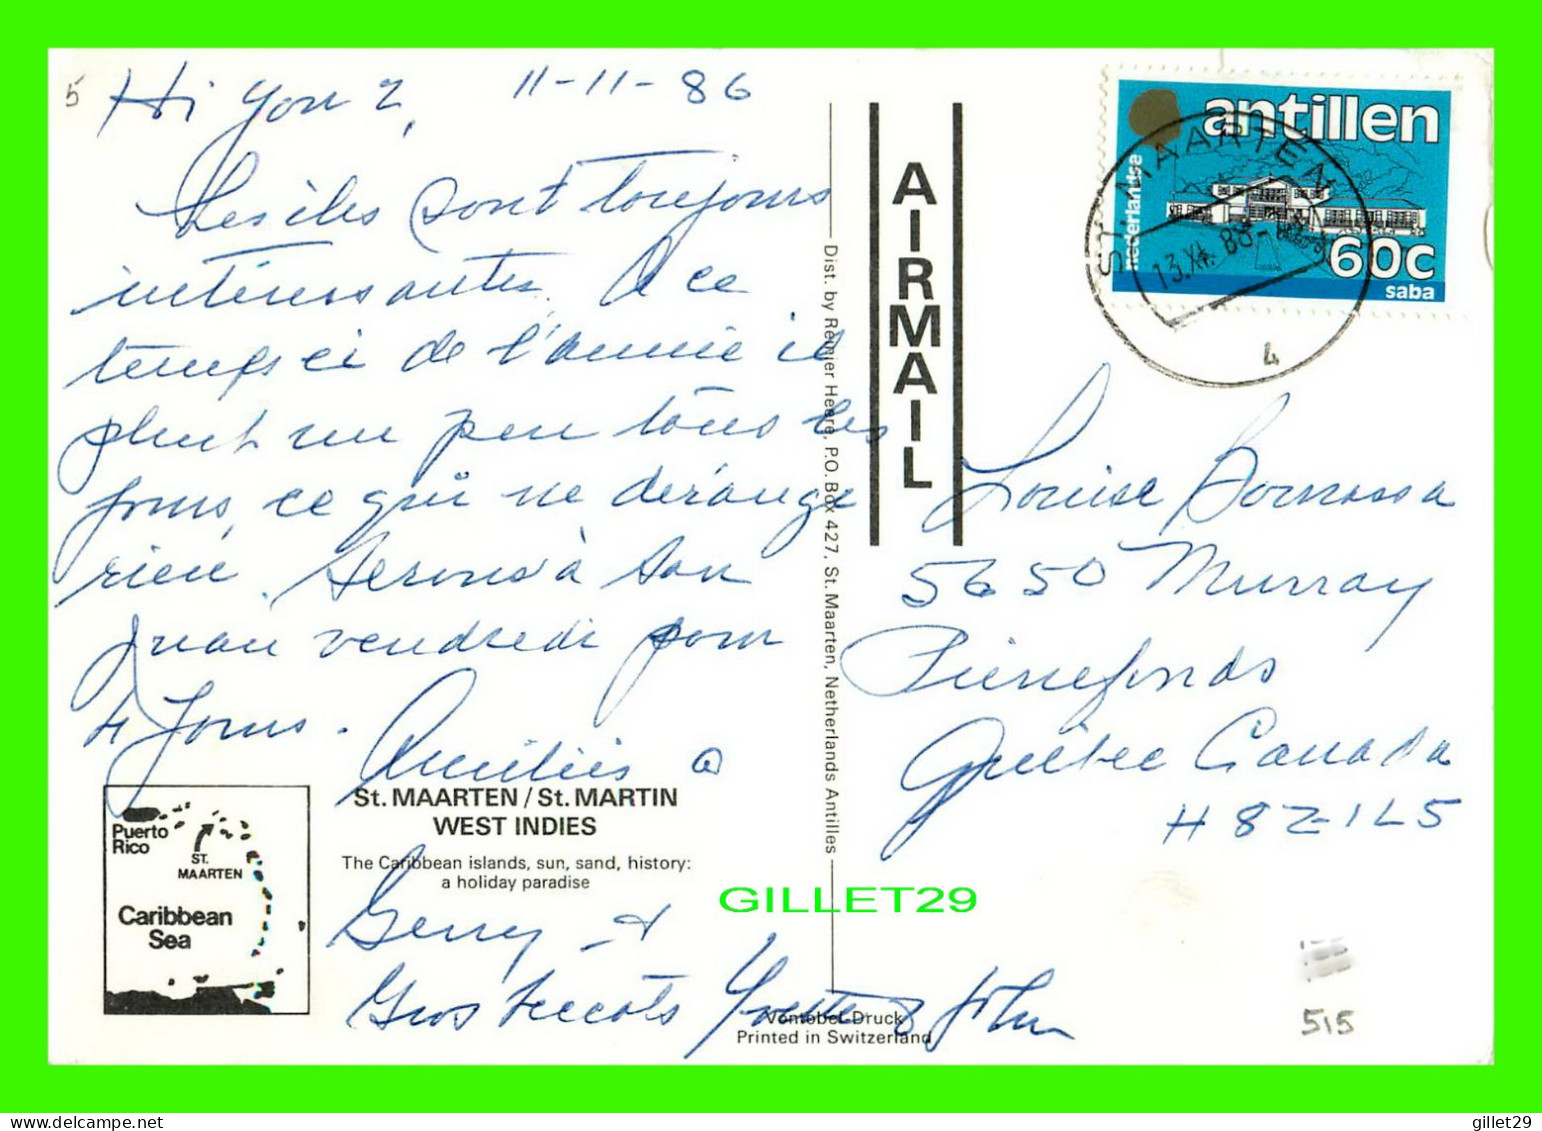 5
Hi You 2, 11-11-86
Les iles sont toujours
intéressantes. A ce
temps ci de l'année il
pleut un peu tous les
jours, ce qui ne dérange
rien. Serons à San
Juan vendredi pour
4 jours.
Amitiés a
Gerry et
Gros beccots Yvette & John
St. MAARTEN / St. MARTIN
WEST INDIES
The Caribbean islands, sun, sand, history:
a holiday paradise
Puerto
Rico
ST.
MAARTEN
Caribbean
Sea
Dist. by Reinier Heere, P.O. Box 427, St. Maarten, Netherlands Antilles
Vontobel-Druck
Printed in Switzerland
AIRMAIL
nederlandse
antillen
60c
saba
ST. MAARTEN
4
Louise
5650 Murray
Pierrefonds
Québec Canada
H8Z-1L5
GILLET29
515
gillet29